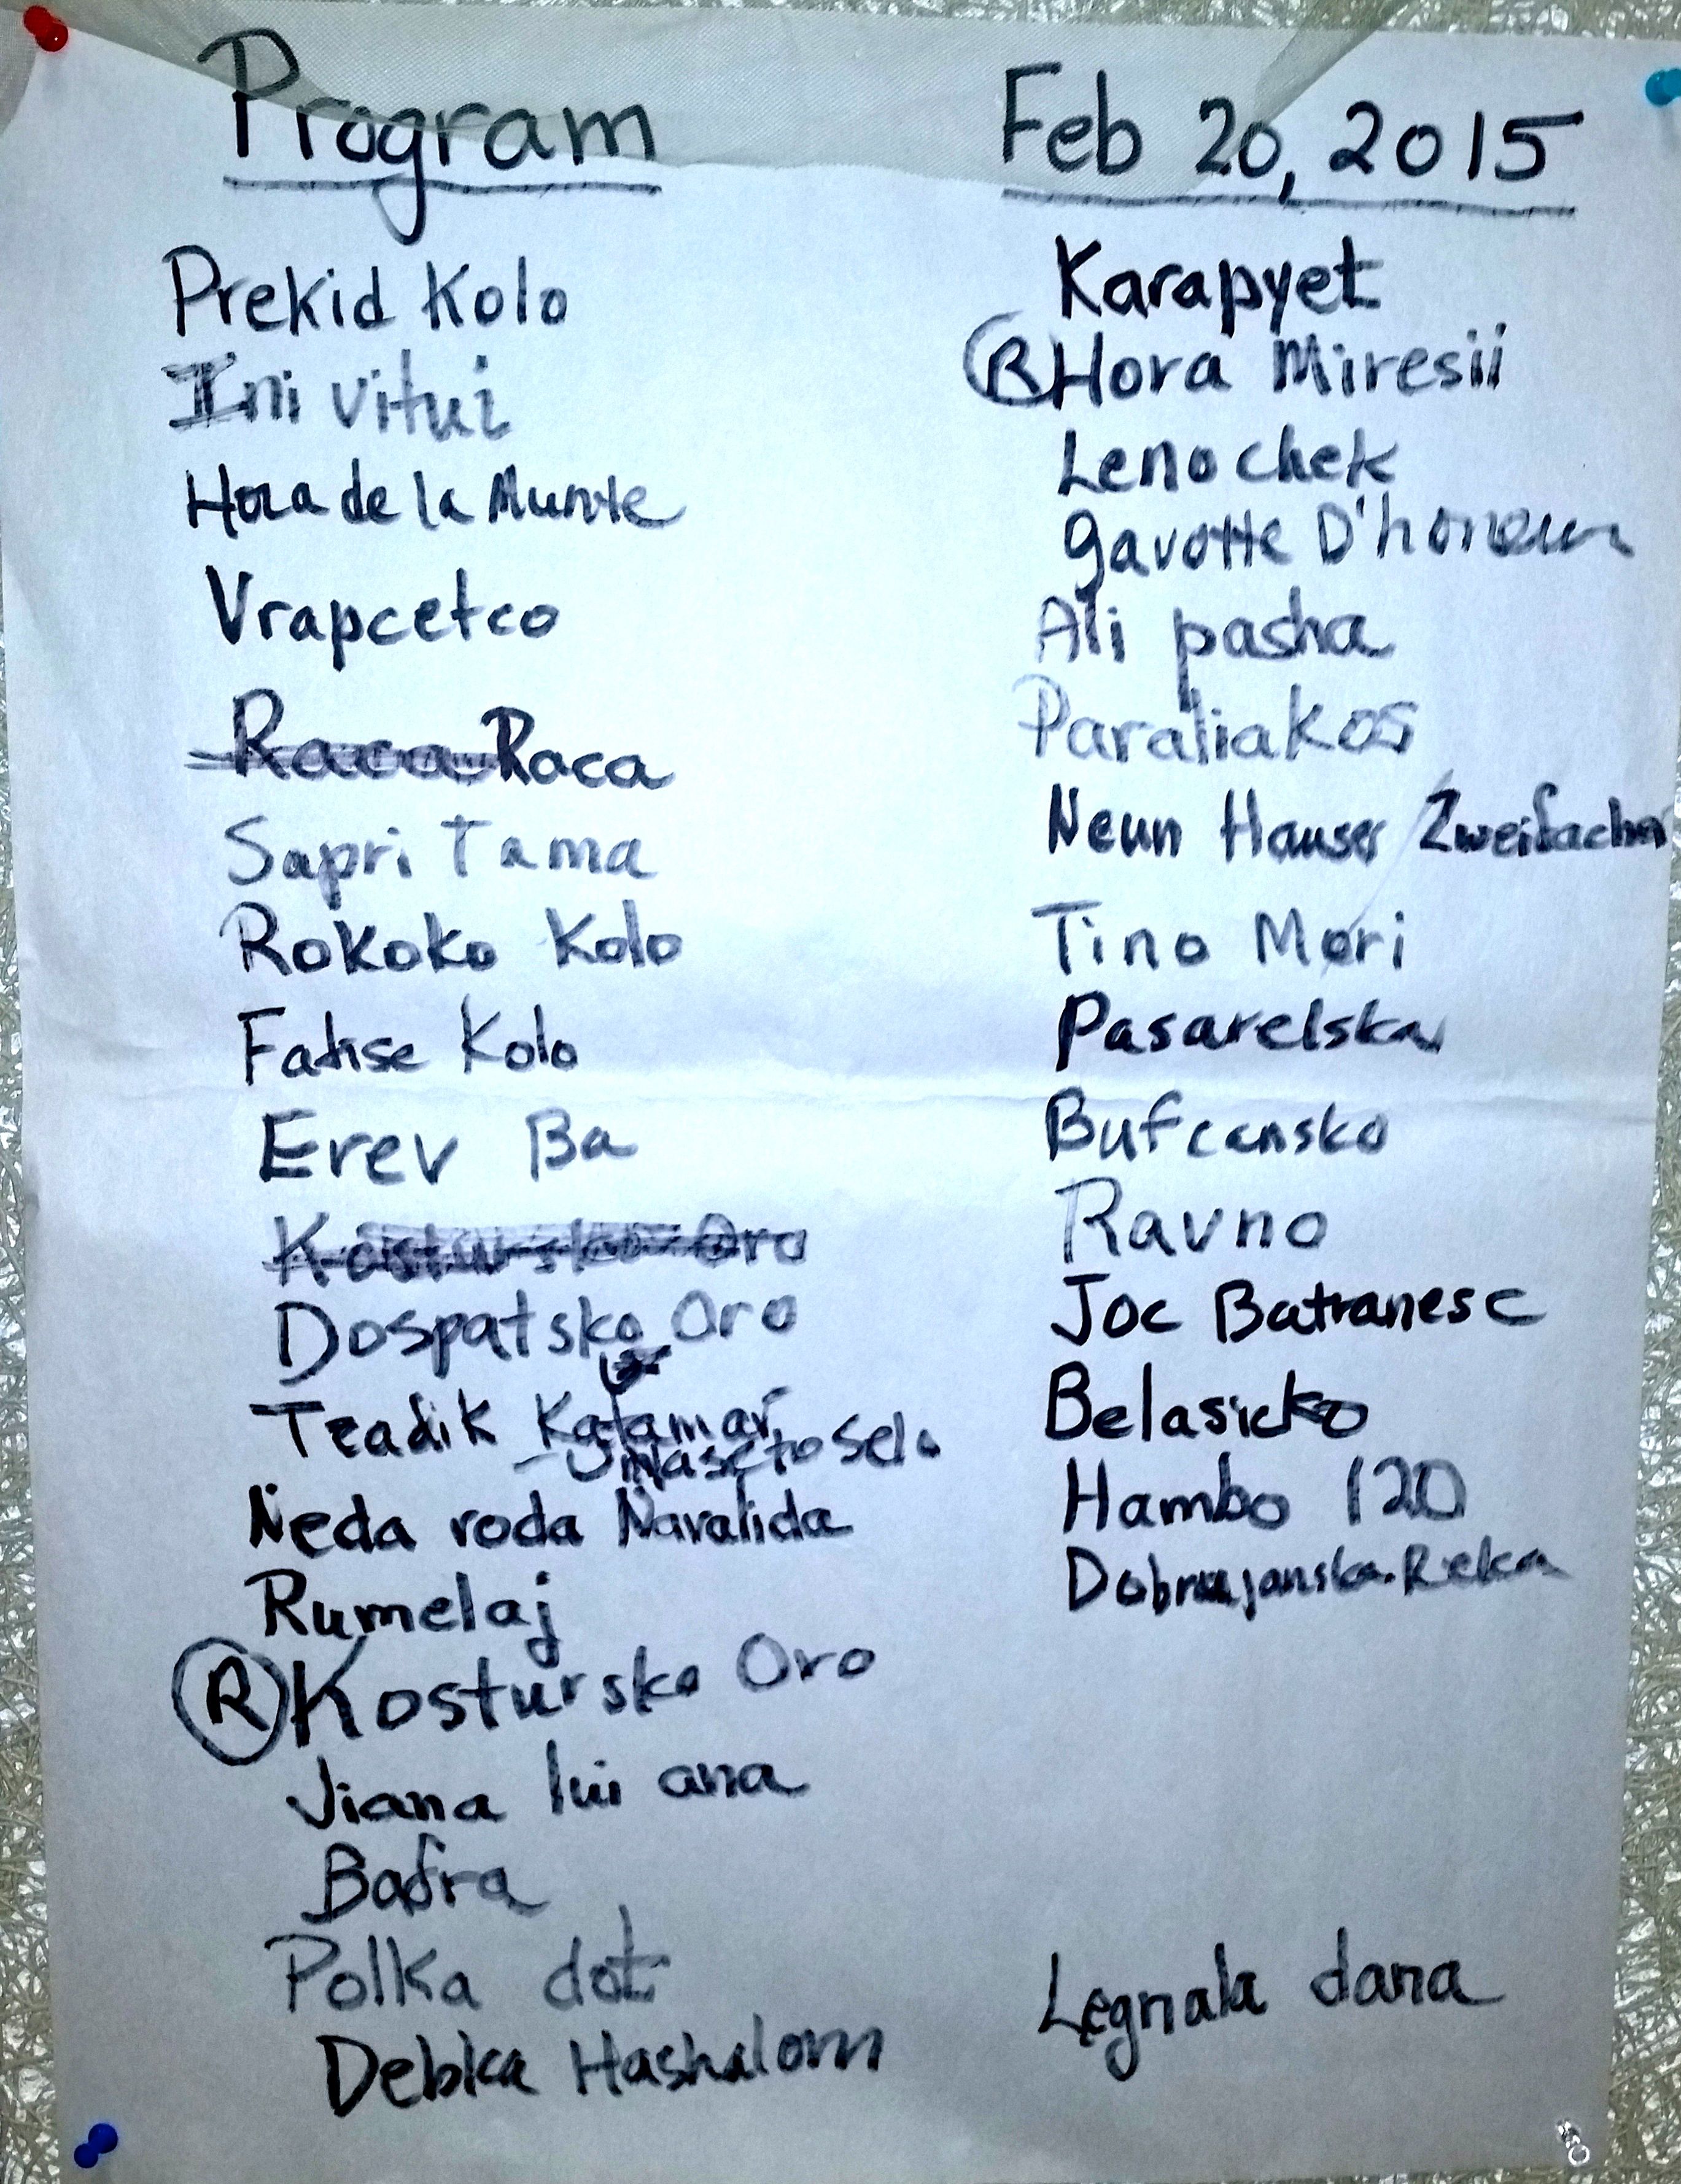 Program
Prekid Kolo
Ini vitui
Hora de la Munte
Vrapcetco
Raca Raca
Sapri Tama
Rokoko Kolo
Fatise Kolo
Erev Ba
Kostursko Oro
Dospatsko Oro
Tradik Kalamar
Unaseto Selo
Neda roda Navalida
Rumelaj
R Kostursko Oro
Jiana lui ana
Bafra
Polka dot
Debka Hashalom
Feb 20, 2015
Karapyet
R Hora Miresii
Lenochek
Gavotte D'honeur
Ali pasha
Paraliakos
Neun Hauser Zweifacher
Tino Mori
Pasarelska
Bufcansko
Ravno
Joc Batranesc
Belasicko
Hambo 120
Reka
Legnala dana